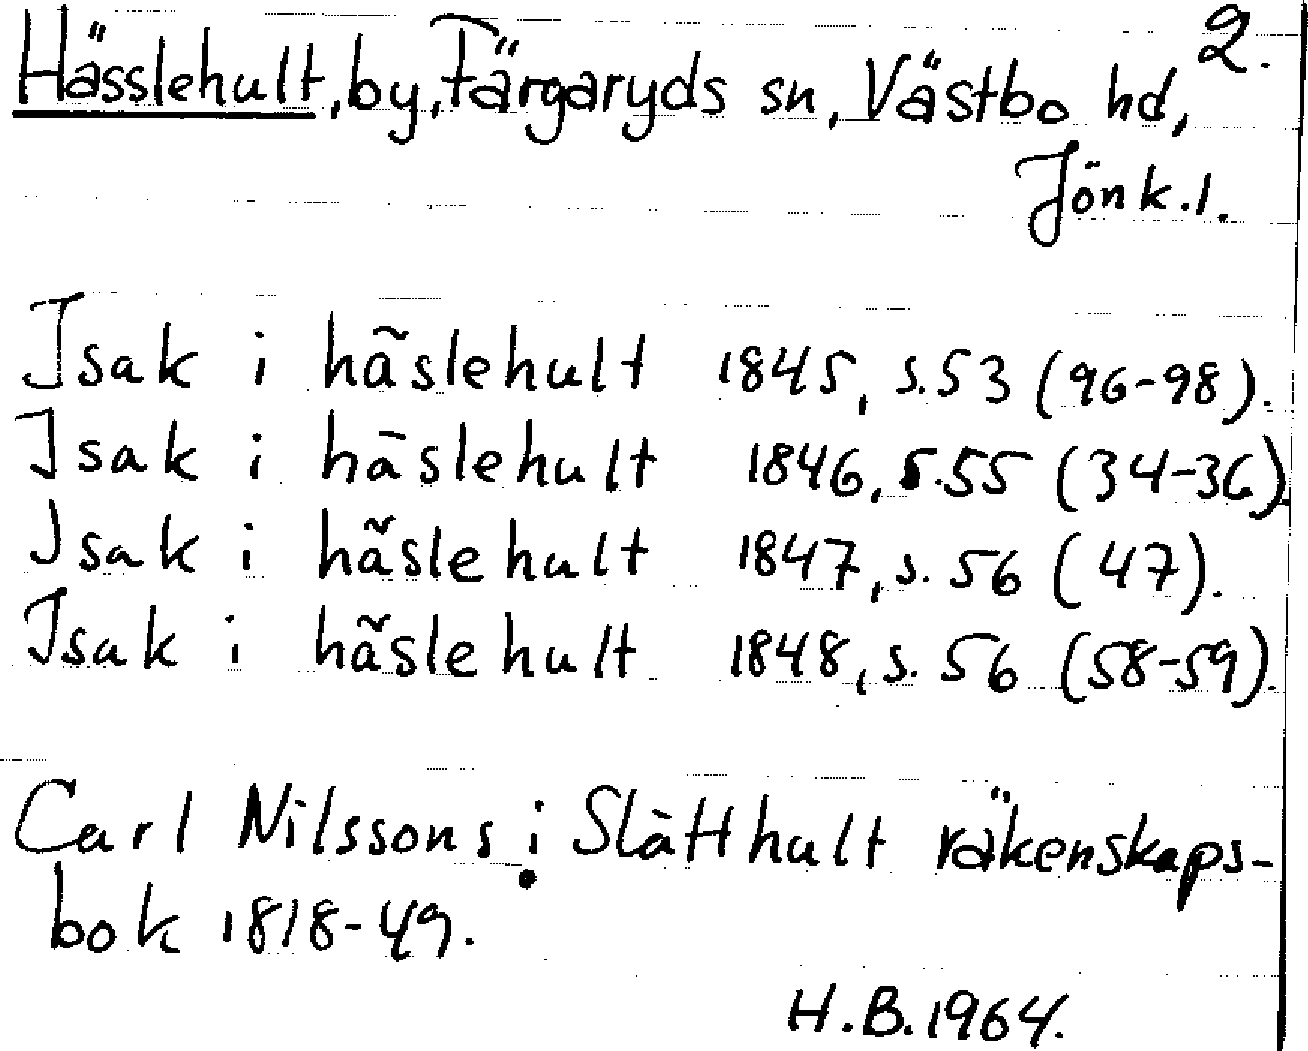 2.
Hässlehult, by, Färgaryds sn, Västbo hd,
Jönk.l.
Isak i hãslehult 1845, s.53 (96-98).
Isak i hāslehult 1846, s.55 (34-36).
Isak i hãslehult 1847, s. 56 (47).
Isak i hãslehult 1848, s. 56 (58-59).
Carl Nilssons i Slätthult räkenskaps-
bok 1818-49.
H.B. 1964.